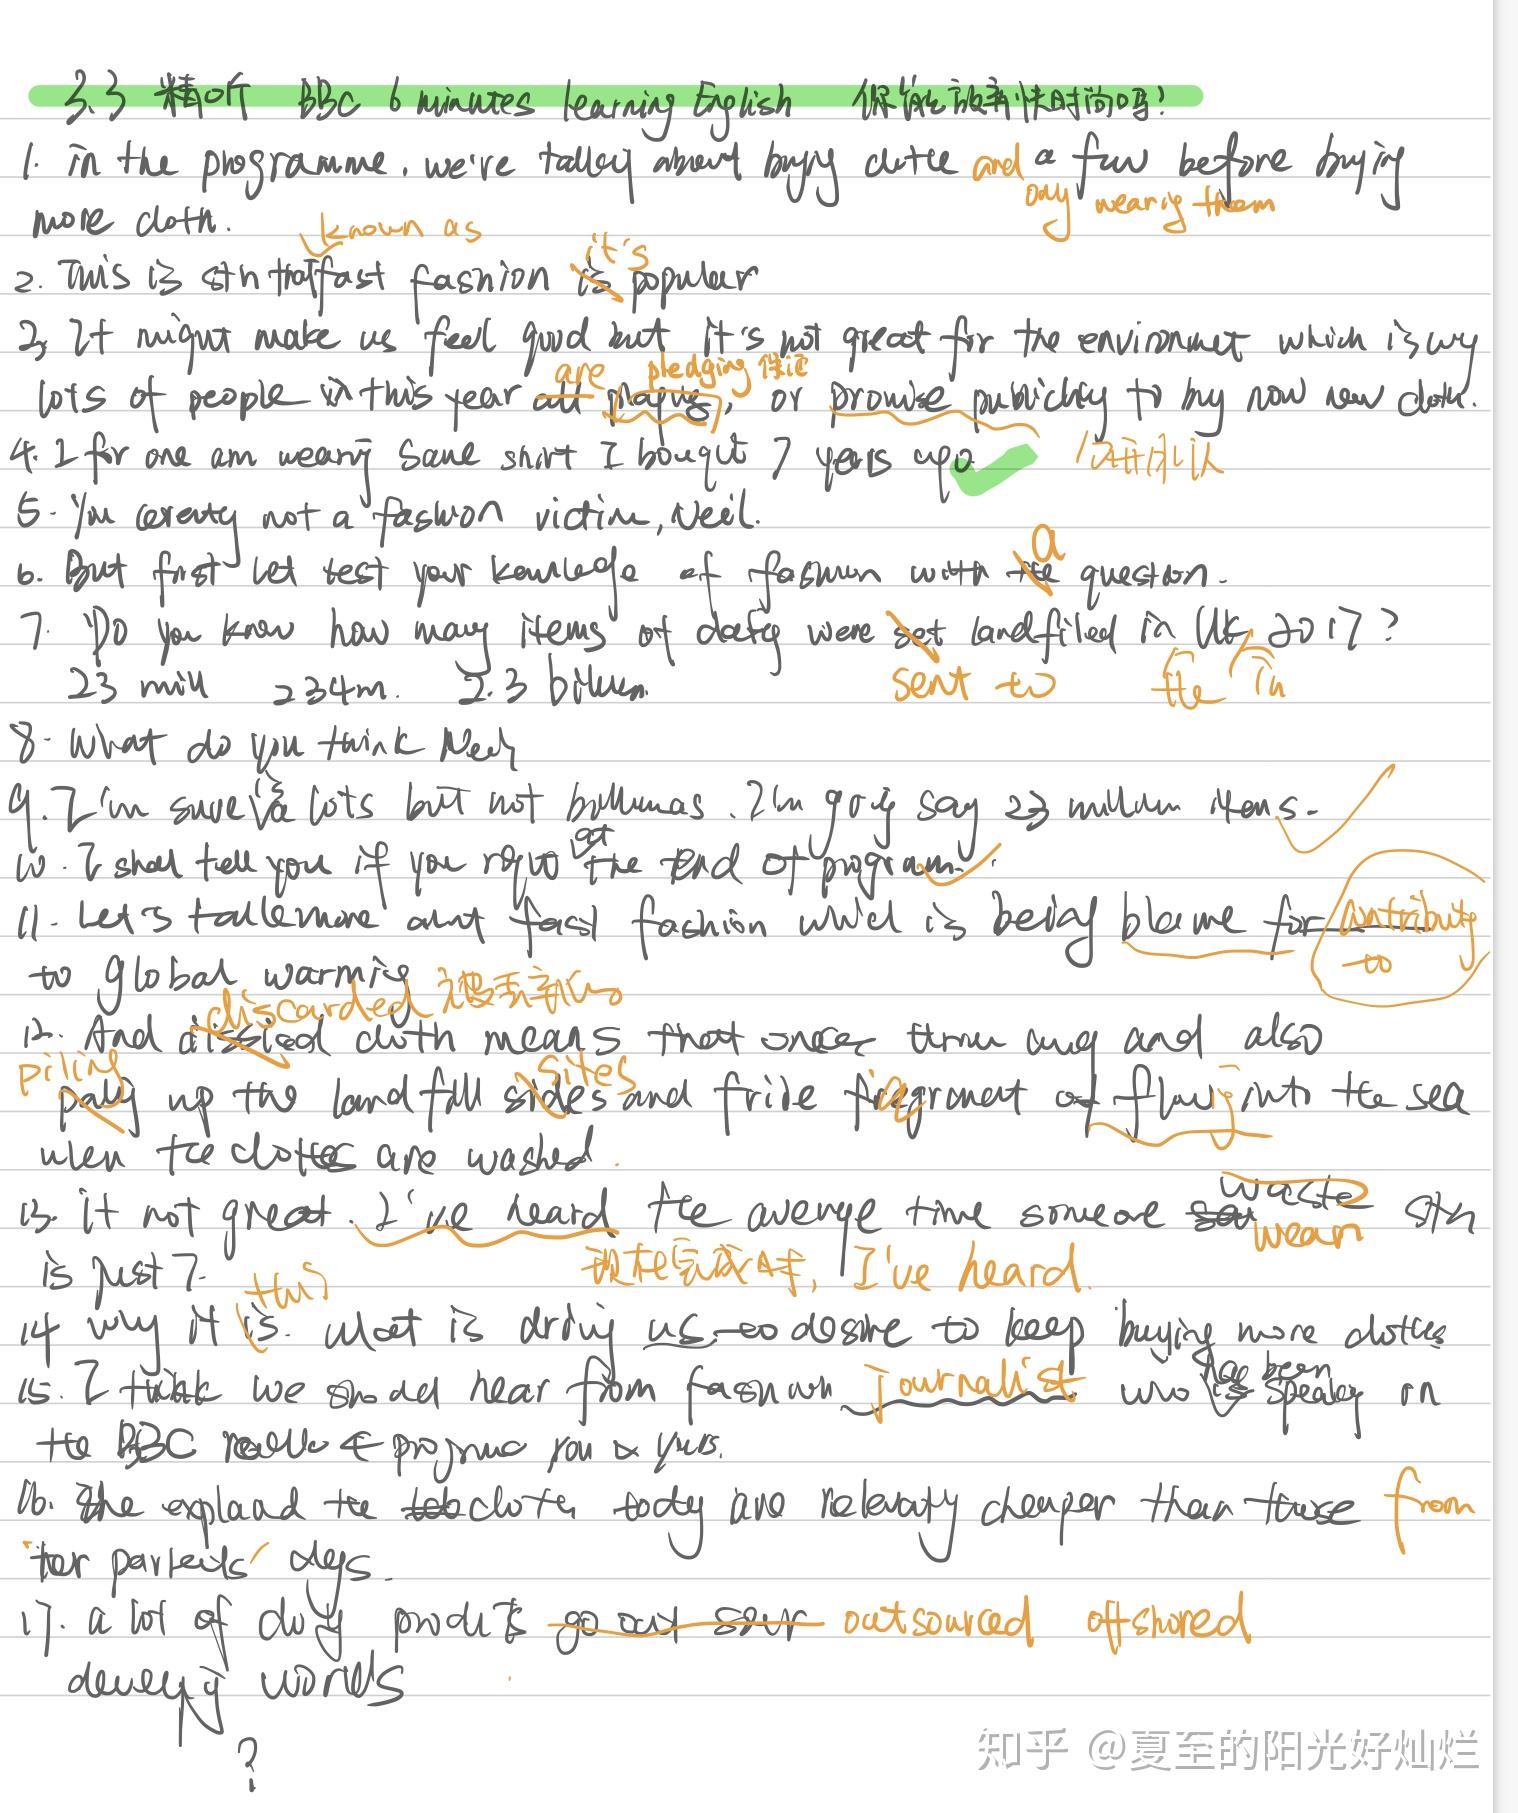 3.3 精听 BBC 6 minutes learning English 你能放弃快时尚吗?
1. in the programme, we're about and a few before buying
only wearing them
more cloth.
known as it's
2. This is sth that fast fashion is popular
3. It might make us feel good but it's not great for the environment which is why
are pledging 保证
lots of people in this year all or promise publicly to buy now new cloth.
4. I for one am wearing same shirt I bought 7 years ago
5. You not a fashion victim, Neil.
a
6. But first let test your of fashion with the question.
7. Do you know how many items of were set landfilled in UK 2017?
sent to the in
23 mill 234m. 2.3
8. What do you think
is
9. I'm sure a lots but not . I'm going say 23 million items.
at
10. I shall tell you if you the end of program.
11. Let's more fast fashion which is being blame for contribute
to global warming to
discarded
12. And cloth means that once and also
piling sites
up the landfill sides and of flow into the sea
when the clothes are washed.
waste
13. it not great. I've heard the average time someone sth
wear
is just 7. 现在完成时, I've heard.
this
14 why it is. What is driving us to desire to keep buying more clothes
has been
15. I think we should hear from fashion journalist who is on
the BBC
16. the today are cheaper than those from
days.
17. a lot of outsourced offshored
worlds
?
知乎 @夏至的阳光好灿烂